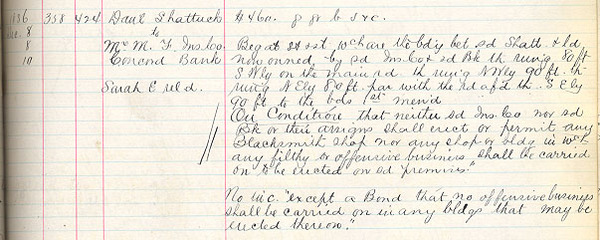 136 358 424 Danl Shattuck $460. g g b s r c.
Dec. 8 to
8 Mc M. F. Ins. Co. Beg at st st wch are the bdy bet sd Shatt. & ld
10 Concord Bank now owned by sd Ins. Co & sd Bk th run'g 80 ft
S Wly on the main rd. th run'g N Wly 90 ft. th
Sarah E rel d. run'g N Ely 80 ft. par with the rd afd th S Ely
90 ft to the bds 1st men'd
On Condition that neither sd Ins. Co nor sd
Bk or their assigns shall erect or permit any
Blacksmith shop nor any shop or bldg in wch
any filthy or offensive business "shall be carried
on to be erected on sd premises."
No Inc. "except a Bond that no offensive business
shall be carried on in any bldgs that may be
erected thereon."